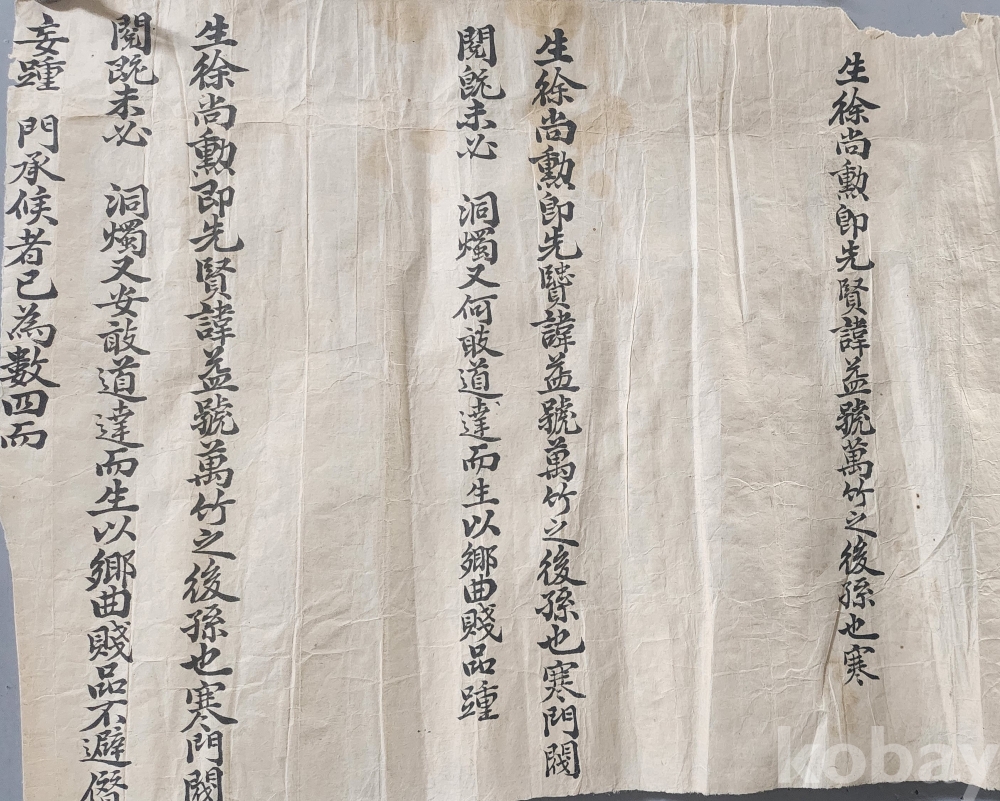 生徐尚勲即先賢諱益號萬竹之後孫也寒
生徐尚勲即先賢諱益號萬竹之後孫也寒門閥
閱旣未必 洞燭又何敢道達而生以鄉曲賤品踵
生徐尚勲即先賢諱益號萬竹之後孫也寒門閥
閱旣未必 洞燭又安敢道達而生以鄉曲賤品不避僭
妄踵 門承候者已為數四而
kobay